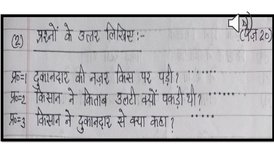 ② प्रश्नों के उत्तर लिखिए:- (पेज 20)
प्र०=1 दुकानदार की नज़र किस पर पड़ी? ······
प्र०=2 किसान ने किताब उलटी क्यों पकड़ी थी? ······
प्र०=3 किसान ने दुकानदार से क्या कहा? ······